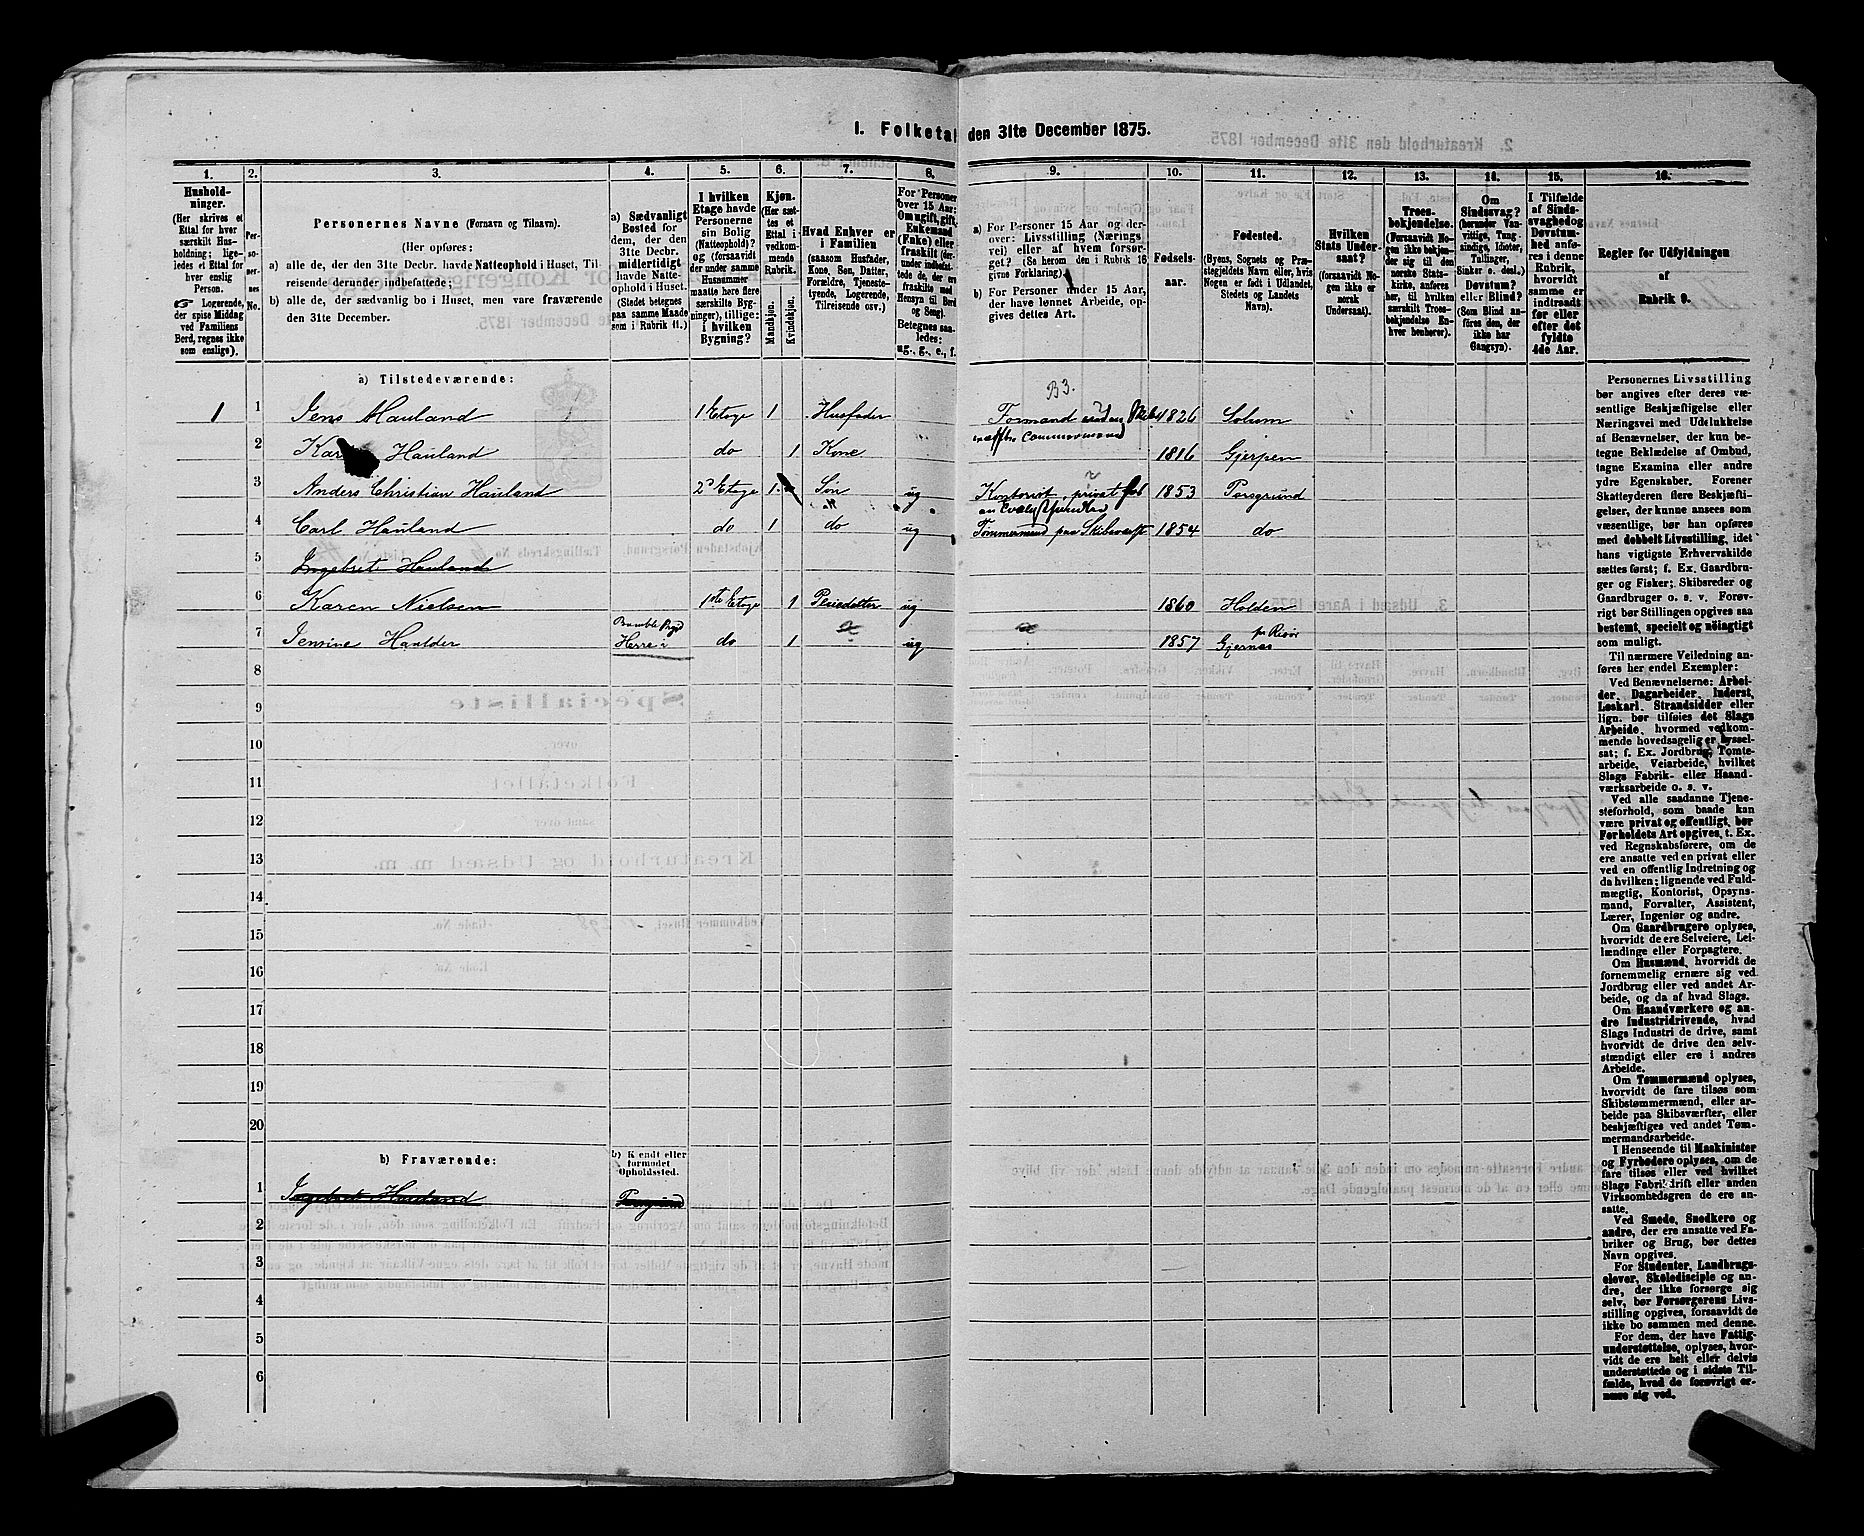 1. Folketal den 31te December 1875.
1. 2. 3. 4. 5. 6. 7. 8. 9. 10. 11. 12. 13. 14. 15. 16.
Hushold-
ninger.
(Her skrives et
Ettal for hver
særskilt Hus-
holdning; lige-
ledes et Ettal for
hver enslig
Person.
☞ Logerende,
der spise Middag
ved Familiens
Berd, regnes ikke
som enslige).
Per-
so-
ner-
nes
No.
Personernes Navne (Fornavn og Tilnavn).
(Her opføres:
a) alle de, der den 31te Decbr. havde Natteophold i Huset, Til-
reisende derunder indbefattede;
b) alle de, der sædvanlig bo i Huset, men vare fraværende
den 31te December.
a) Sædvanligt
Bosted for
dem, der den
31te Decbr.
midlertidigt
havde Natte-
ophold i Huset.
(Stedet betegnes
paa samme Maade
som i Rubrik 11.)
I hvilken
Etage havde
Personerne
sin Bolig
(Natteophold)?
og (forsaavidt
der under samme
Husnummer
maatte høre flere
særskilte Byg-
ninger), tillige:
i hvilken
Bygning?
Kjøn.
(Her sæt-
tes et
Ettal i
vedkom-
mende
Rubrik.)
Mandkjøn.
Kvindekjøn.
Hvad Enhver er
i Familien
(saasom Husfader,
Kone, Søn, Datter,
Forældre, Tjeneste-
tyende, Logerende,
Tilreisende osv.)
For Personer
over 15 Aar:
Om ugift, gift,
Enkemand
(Enke) eller
fraskilt (der-
under indbefat-
tede de, der ere
fraskilte med
Hensyn til Bord
og Seng).
Betegnes saa-
ledes:
ug., g., e., f.
a) For Personer 15 Aar og der-
over: Livsstilling (Nærings-
vei) eller af hvem forsør-
get? (Se herom den i Rubrik 16
givne Forklaring.)
b) For Personer under 15 Aar,
der have lønnet Arbeide, op-
gives dettes Art.
Fødsels-
aar.
Fødested.
(Byens, Sognets og Præ-
stegjeldets Navn eller, hvis
Nogen er født i Udlandet,
Stedets og Landets
Navn).
Hvilken
Stats Under-
saat?
(forsaavidt No-
gen ikke er
norsk
Undersaat).
Troes-
bekjendelse.
(Forsaavidt No-
gen ikke bekjen-
der sig til den
norske Stats-
kirke, anføres
her, til hvilken
særskilt Troes-
bekjendelse En-
hver henhører).
Om
Sindssvag?
(herunder Van-
vittige, Tung-
sindige, Idioter,
Tullinger,
Sinker o. desl.)
Døvstum?
eller Blind?
(Som Blind an-
føres den, der
ikke har
Gangsyn).
I Tilfælde
af Sinds-
svaghed og
Døvstum-
hed anfø-
res i denne
Rubrik,
hvorvidt
samme er
indtraadt
før eller
efter det
fyldte
4de Aar.
Regler for Udfyldningen
af
Rubrik 9.
a) Tilstedeværende:
B3.
1 1 Jens Hauland 1 Etage 1 Husfader Formand 1826 Solum
2 Hauland do 1 Kone 1816 Gjerpen
3 Anders Christian Hauland 2d Etage 1 Søn ug Kontorist, privat 1853 Porsgrund
4 Carl Hauland do 1 do ug Tømmermand paa Skibsværft 1854 do
5 Ingebret Hauland
6 Karen Nielsen 1ste Etage 1 Pleiedatter ug 1860 Holden
7 Jensine Bamble Herre i do 1 ug 1857 pr Risør
8
9
10
11
12
13
14
15
16
17
18
19
20
b) Fraværende:
b) Kjendt eller
formodet
Opholdssted.
1 Ingebret Hauland Porsgrund
2
3
4
5
6
Personernes Livsstilling
bør angives efter deres væ-
sentlige Beskjæftigelse eller
Næringsvei med Udelukkelse
af Benævnelser, der kun be-
tegne Beklædelse af Ombud,
tagne Examina eller andre
ydre Egenskaber. Forener
Skatteyderen flere Beskjæfti-
gelser, der kunne ansees som
væsentlige, bør han opføres
med dobbelt Livsstilling, idet
hans vigtigste Erhvervskilde
sættes først; f. Ex. Gaardbru-
ger og Fisker; Skibsreder og
Gaardbruger o. s. v. Forøv-
rigt bør Stillingen opgives saa
bestemt, specielt og nøiagtigt
som muligt.
Til nærmere Veiledning an-
føres her endel Exempler:
Ved Benævnelserne: Arbei-
der, Dagarbeider, Inderst,
Løskarl, Strandsidder eller
lign. bør tilføies det Slags
Arbeide, hvormed vedkom-
mende hovedsagelig er syssel-
sat; f. Ex. Jordbrug, Tomte-
arbeide, Veiarbeide, hvilket
Slags Fabrik- eller Haand-
værksarbeide o. s. v.
Ved alle saadanne Tjene-
steforhold, som baade kan
være privat og offentligt, bør
Forholdets Art opgives, t. Ex.
ved Regnskabsførere, om de
ere ansatte ved en privat eller
ved en offentlig Indretning og
da hvilken; lignende ved Fuld-
mægtig, Kontorist, Opsyns-
mand, Forvalter, Assistent,
Lærer, Ingeniør og andre.
Om Gaardbrugere oplyses,
hvorvidt de ere Selveiere, Lei-
lændinge eller Forpagtere.
Om Husmænd, hvorvidt de
fornemmelig ernære sig ved
Jordbrug eller ved andet Ar-
beide, og da af hvad Slags.
Om Haandværkere og an-
dre Industridrivende, hvad
Slags Industri de drive, samt
hvorvidt de drive den selv-
stændigt eller ere i andres
Arbeide.
Om Tømmermænd oplyses,
hvorvidt de fare tilsøs som
Skibstømmermænd, eller ar-
beide paa Skibsværfter, eller
beskjæftiges ved andet Tøm-
mermandsarbeide.
I Henseende til Maskinister
og Fyrbødere oplyses, om de
fare tilsøs eller ved hvilket
Slags Fabrikdrift eller anden
Virksomhedsgren de ere an-
satte.
Ved Smede, Snedkere og
andre, der ere ansatte ved Fa-
briker og Brug, bør dettes
Navn opgives.
For Studenter, Landbrugs-
elever, Skoledisciple og an-
dre, der ikke forsørge sig
selv, bør Forsørgerens Livs-
stilling opgives, forsaavidt de
ikke bo sammen med denne.
For dem, der have Fattig-
understøttelse, oplyses, hvor-
vidt de ere helt eller delvis
understøttede og i sidste Til-
fælde, hvad de forøvrigt er-
nære sig ved.